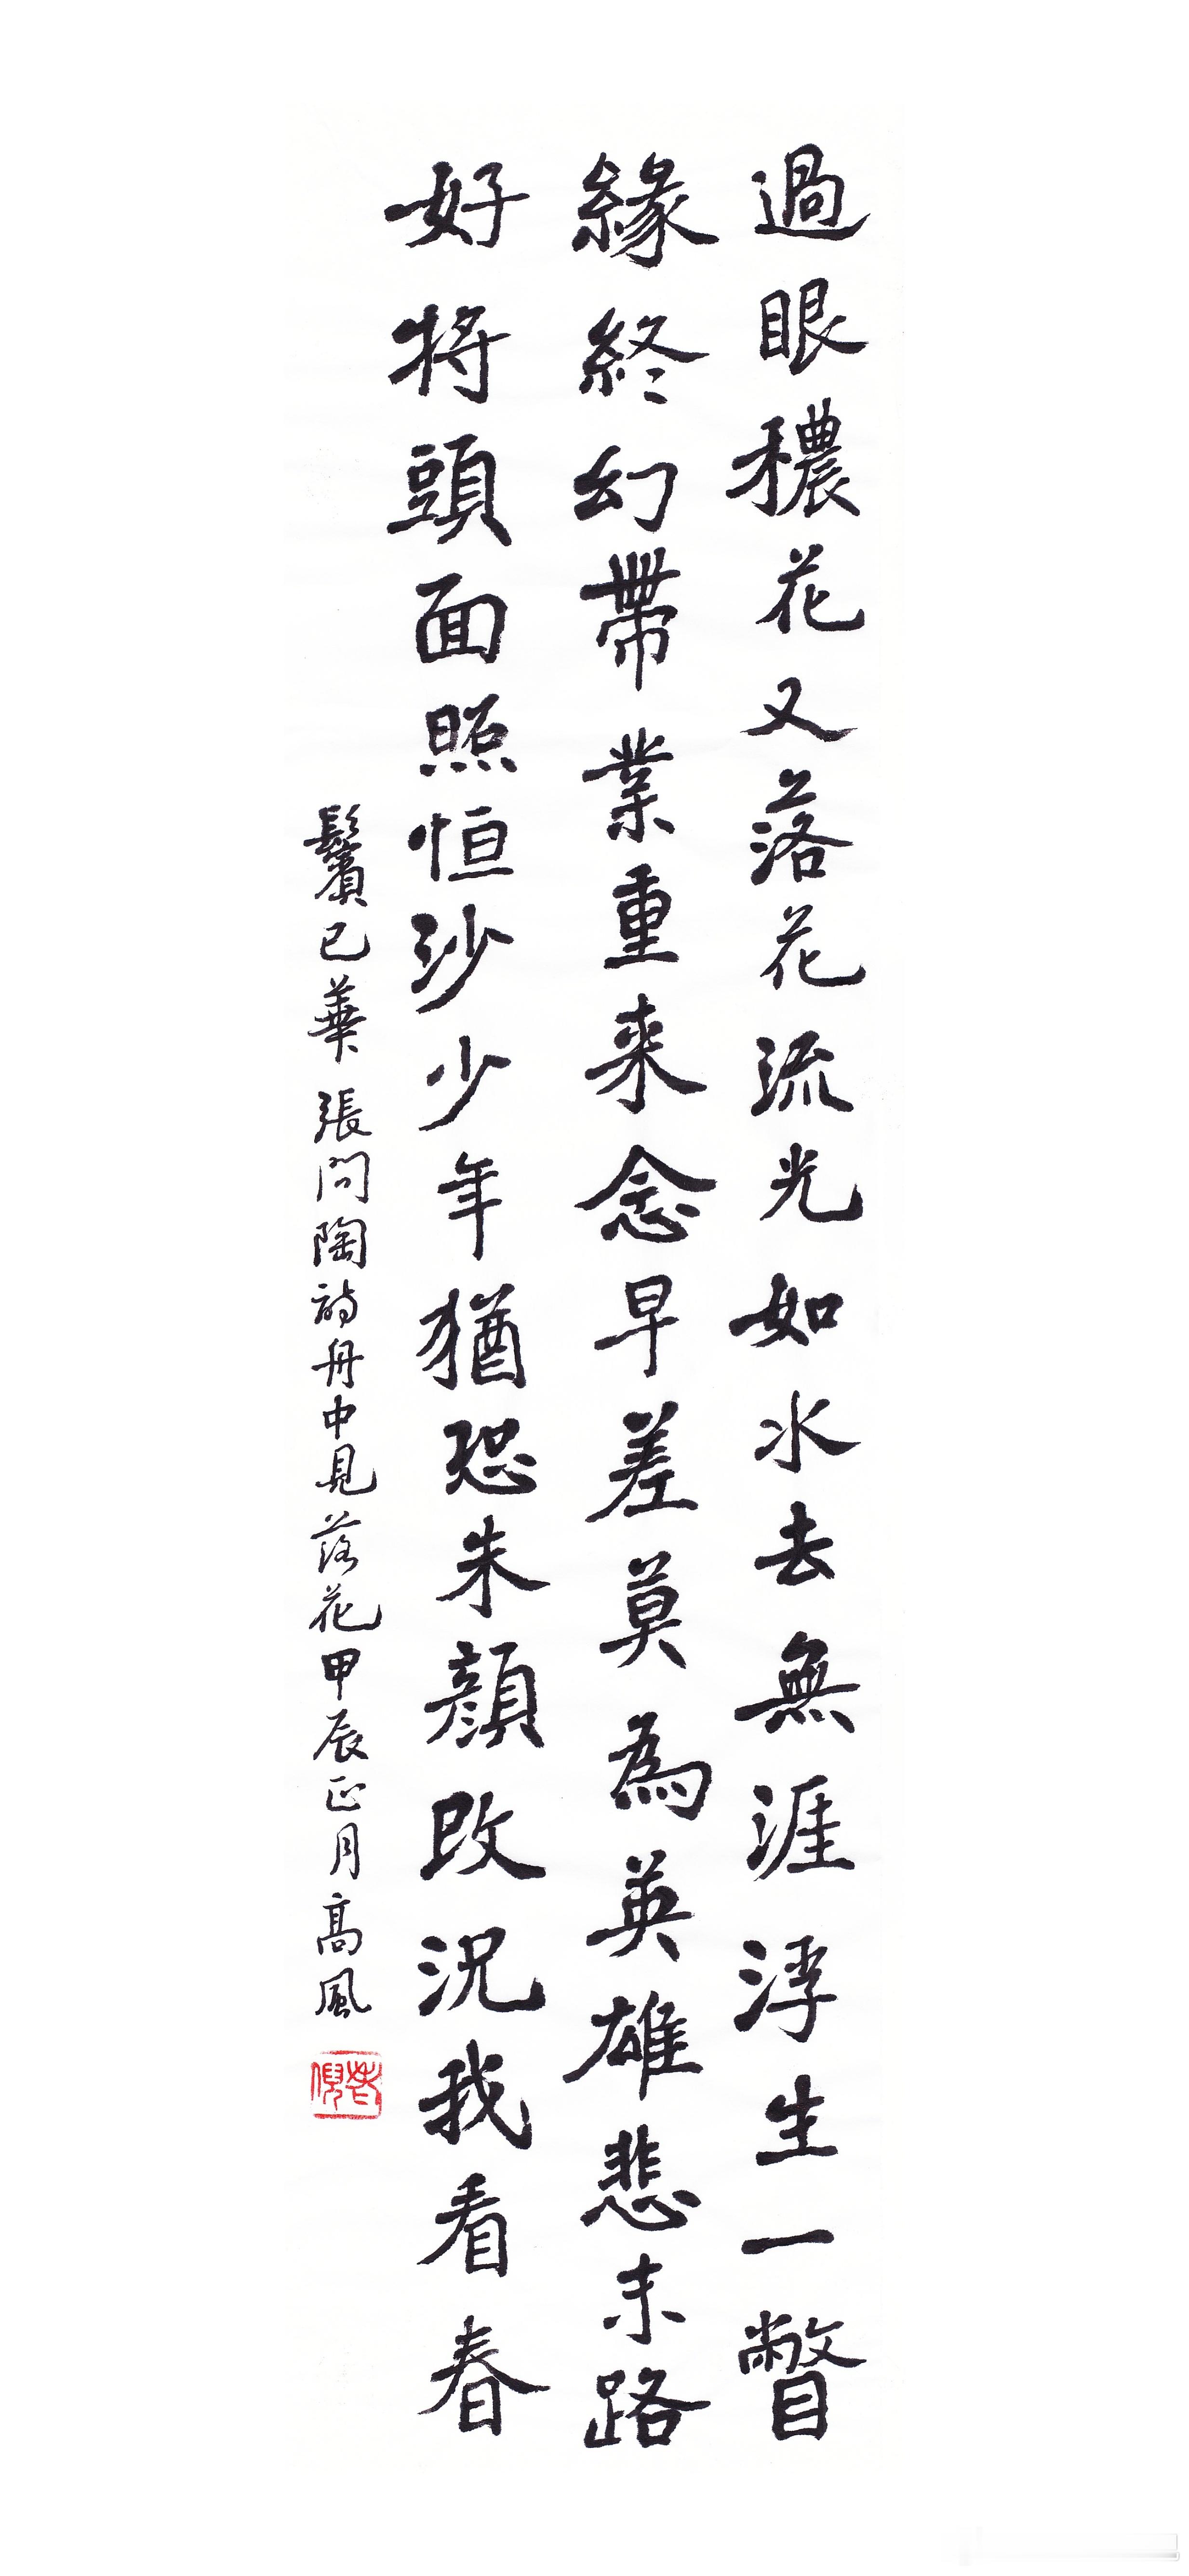 過眼穠花又落花流光如水去無涯浮生一瞥
緣終幻帶業重來念早差莫為英雄悲末路
好將頭面照恒沙少年猶恐朱顏改況我看春
鬢已華 張問陶詩舟中見落花甲辰正月高風